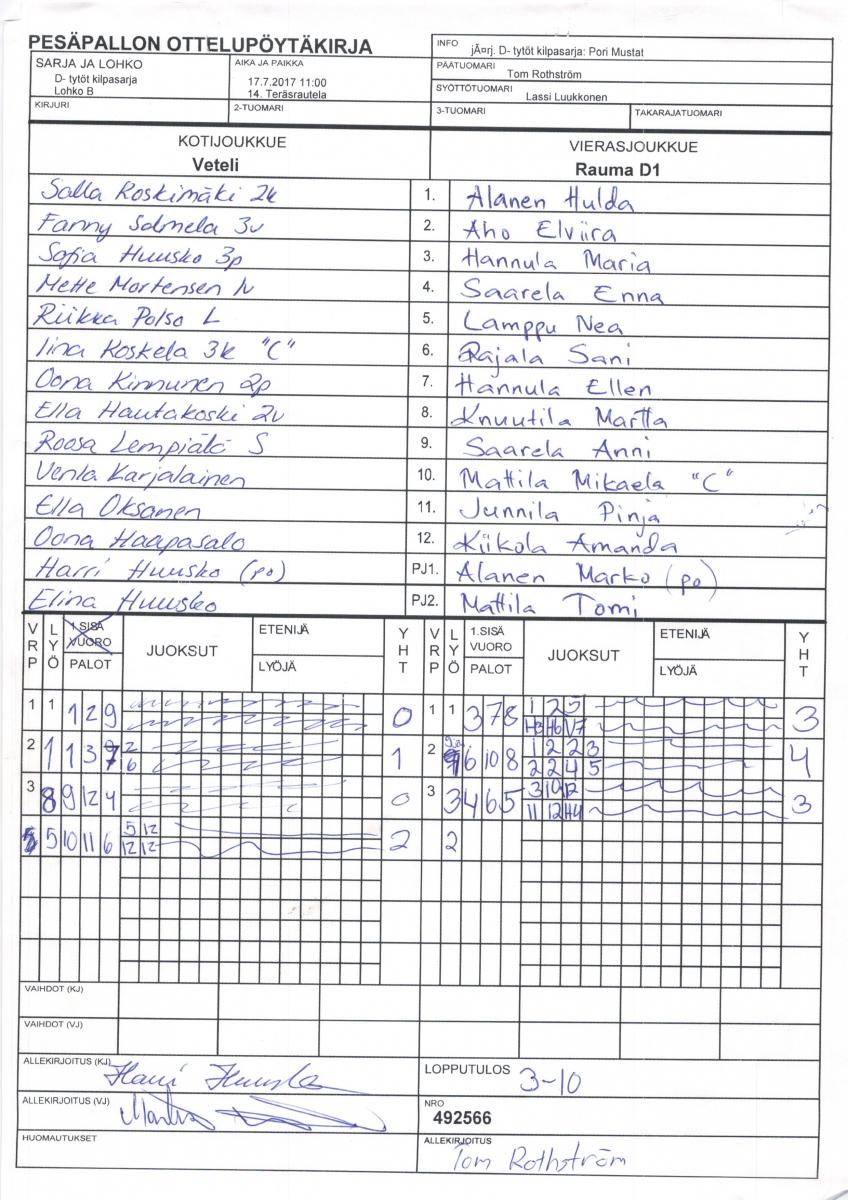 PESÄPALLON OTTELUPÖYTÄKIRJA
INFO jÃ¤rj. D- tytöt kilpasarja: Pori Mustat
SARJA JA LOHKO
D- tytöt kilpasarja
Lohko B
AIKA JA PAIKKA
17.7.2017 11:00
14. Teräsrautela
PÄÄTUOMARI Tom Rothström
SYÖTTÖTUOMARI Lassi Luukkonen
KIRJURI 2-TUOMARI 3-TUOMARI TAKARAJATUOMARI
KOTIJOUKKUE VIERASJOUKKUE
Veteli Rauma D1
Salla Koskimäki 2k 1. Alanen Hulda
Fanny Salmela 3v 2. Aho Elviira
Sofia Huusko 3p 3. Hannula Maria
Mette Mortensen 4. Saarela Enna
Riikka Polso L 5. Lamppu Nea
Iina Koskela 3k "C" 6. Rajala Sani
Oona Kinnunen 2p 7. Hannula Ellen
Ella Hautakoski 2v 8. Knuutila Martta
Roosa Lempiälä S 9. Saarela Anni
Venla Karjalainen 10. Mattila Mikaela "C"
Ella Oksanen 11. Junnila Pinja
Oona Haapasalo 12. Kiikola Amanda
Harri Huusko (po) PJ1. Alanen Marko (po)
Elina Huusko PJ2. Mattila Tomi
VRP LYÖ 1.SISÄ VUORO PALOT JUOKSUT ETENIJÄ LYÖJÄ YHT VRP LYÖ 1.SISÄ VUORO PALOT JUOKSUT ETENIJÄ LYÖJÄ YHT
1 1 1 2 9 0 1 1 3 7 8 1 2 5 3
H3 H6 V7
2 1 1 3 7 2 1 2 6 10 8 1 2 2 3 4
6 2 2 4 5
3 8 9 12 4 0 3 3 4 6 5 3 10 12 3
11 12 H4
5 10 11 6 5 12 2 2
12 12
VAIHDOT (KJ)
VAIHDOT (VJ)
ALLEKIRJOITUS (KJ) Harri Huusko LOPPUTULOS 3-10
ALLEKIRJOITUS (VJ) NRO
492566
HUOMAUTUKSET ALLEKIRJOITUS
Tom Rothström